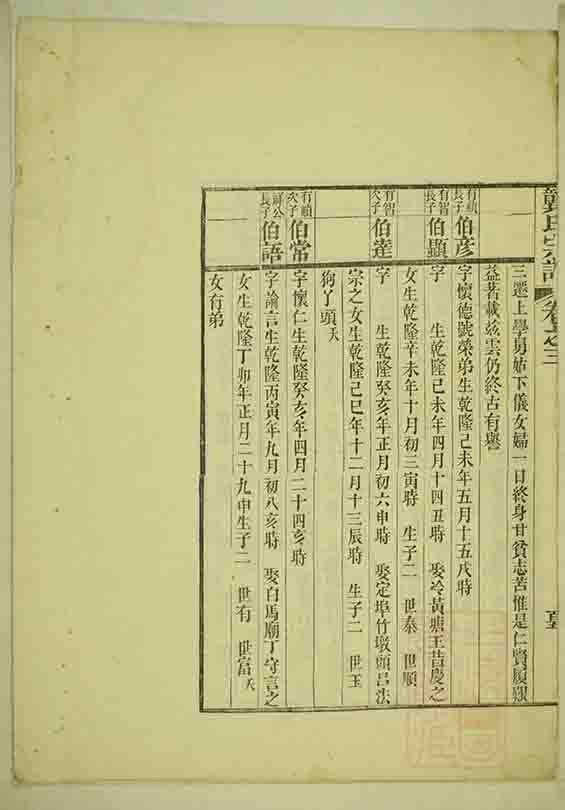 氏宗譜 卷之三
三遷上學易姑下儀女婦一日終身甘貧志苦惟是仁賢履艱
益著載茲雲仍終古有譽
有順長子 伯彥 字懷德號榮弟生乾隆己未年五月十五戌時
有智長子 伯顯 字 生乾隆己未年四月十四丑時 娶冷黃塘王昔慶之
女生乾隆辛未年十月初三寅時 生子二 世泰 世順
有智次子 伯達 字 生乾隆癸亥年正月初六申時 娶定埠竹墩頭呂法
宗之女生乾隆己巳年十二月十三辰時 生子二 世玉
狗丫頭夭
有順次子 伯常 字懷仁生乾隆癸亥年四月二十四亥時
公長子 伯語 字論言生乾隆丙寅年九月初八亥時 娶白馬廟丁守言之
女生乾隆丁卯年正月二十九申生子二 世有 世富夭
女有弟